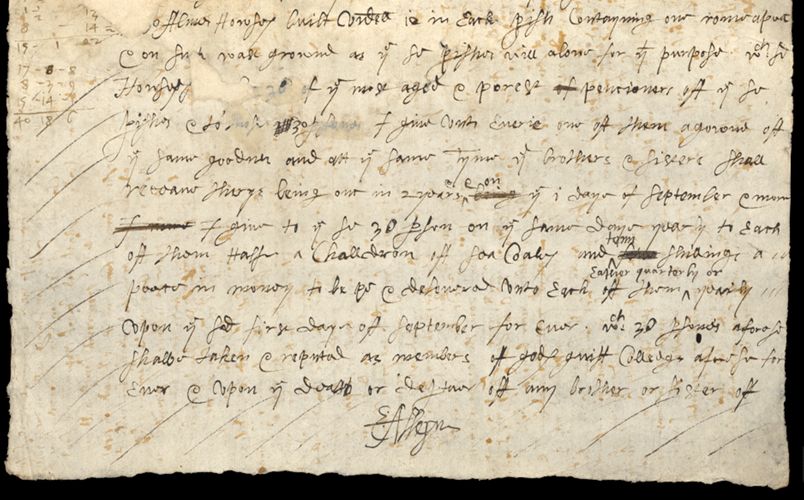 of Almes Howses built viddz 10 in Each pish Contayning one rome apeec
& on such wast ground as ye sd pishes will alowe for yt purpose wch sd
Howses of ye most aged & porest of pencioners off ye sd
pishes & to 30 I give unto Everie one off them a gowne off
ye same goodnes and att ye same Tyme ye brothers & sisters shall
receave theyrs being one in 2 years & on ye 1 daye of September & more
I give to ye sd 30 pson on ye same daye yearly to Each
off them Halfe a Challdron off sea Coales and tenn shillings a
peace in money to be pd & delivered unto Each off them Eather quarterly or yearly
upon ye sd first daye off September for Ever. wch 30 psones aforesd
shalbe taken & reputed as members off gods guift Colledge aforesd for
Ever & upon ye death or depture off any brother or sister off
EAlleyn
15 - 1
17 - 8 - 8
40 18 6